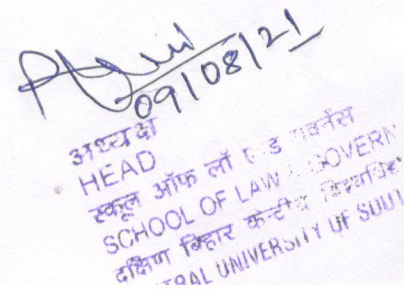 09/08/21
अध्यक्ष
HEAD
स्कूल ऑफ लॉ एंड गवर्नेंस
SCHOOL OF LAW & GOVERN
दक्षिण बिहार केन्द्रीय
CENTRAL UNIVERSITY OF SOUT